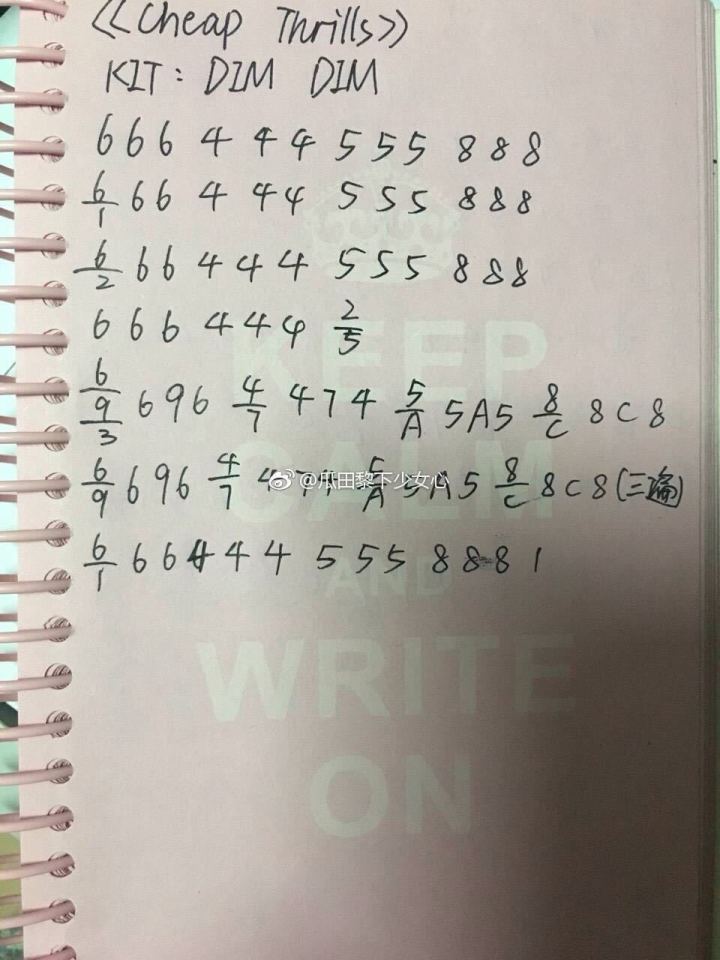 《Cheap Thrills》
KIT: DIM DIM
6 6 6 4 4 4 5 5 5 8 8 8
6/1 6 6 4 4 4 5 5 5 8 8 8
6/2 6 6 4 4 4 5 5 5 8 8 8
6 6 6 4 4 4 2/5
6/9/3 6 9 6 4/7 4 7 4 5/A 5 A 5 8/C 8 C 8
6/9 6 9 6 4/7 4 7 4 5/A 5 A 5 8/C 8 C 8 (三遍)
@瓜田黎下少女心
6/1 6 6 4 4 4 5 5 5 8 8 8 1
KEEP
CALM
AND
WRITE
ON